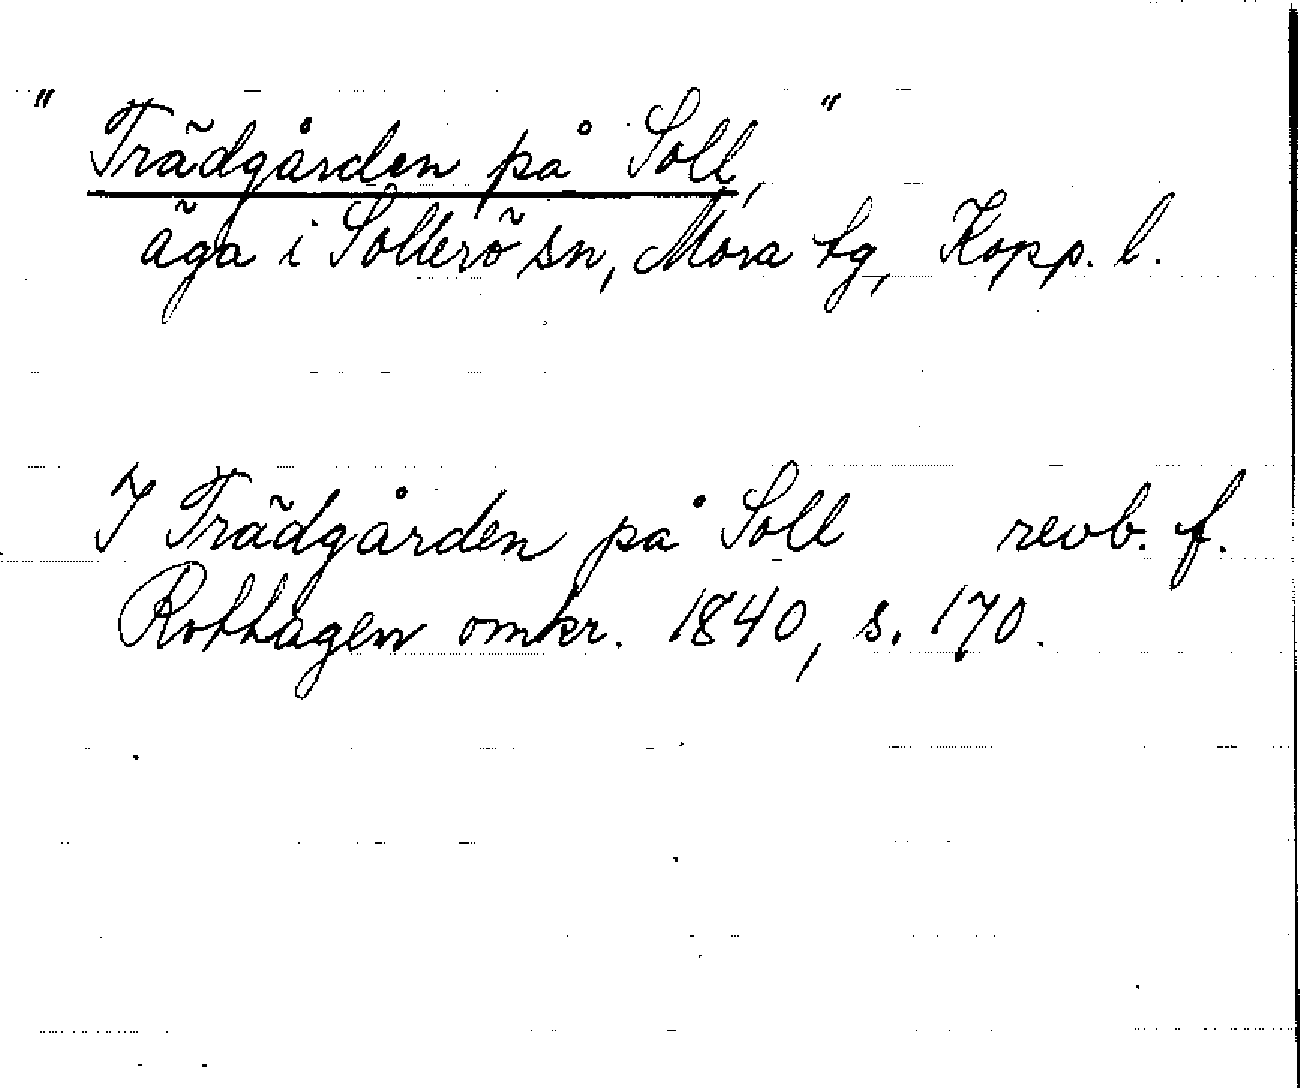 " Trädgården på Soll, "
äga i Sollerö sn, Mora tg, Kopp. l.
I Trädgården på Soll revb. f.
Rothagen omkr. 1840, s. 170.